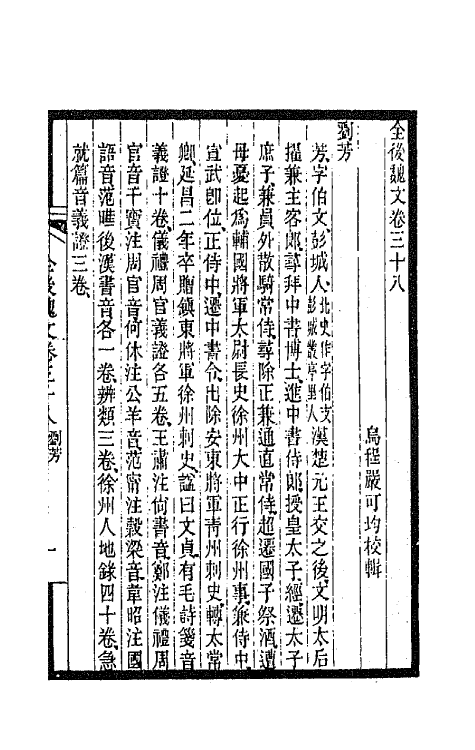 全後魏文卷三十八
烏程嚴可均校輯
劉芳
芳字伯文彭城人北史作字伯支彭城叢亭里人漢楚元王交之後文明太后
擢兼主客郎尋拜中書博士進中書侍郎授皇太子經遷太子
庶子兼員外散騎常侍尋除正兼通直常侍超遷國子祭酒遭
母憂起爲輔國將軍太尉長史徐州大中正行徐州事兼侍中
宣武卽位正侍中遷中書令出除安東將軍青州刺史轉太常
卿延昌二年卒贈鎮東將軍徐州刺史謚曰文貞有毛詩箋音
義證十卷儀禮周官義證各五卷王肅注尙書音鄭注儀禮周
官音干寶注周官音何休注公羊音范甯注穀梁音韋昭注國
語音范曄後漢書音各一卷辨類三卷徐州人地錄四十卷急
就篇音義證三卷
全後魏文卷三十八 劉芳 一